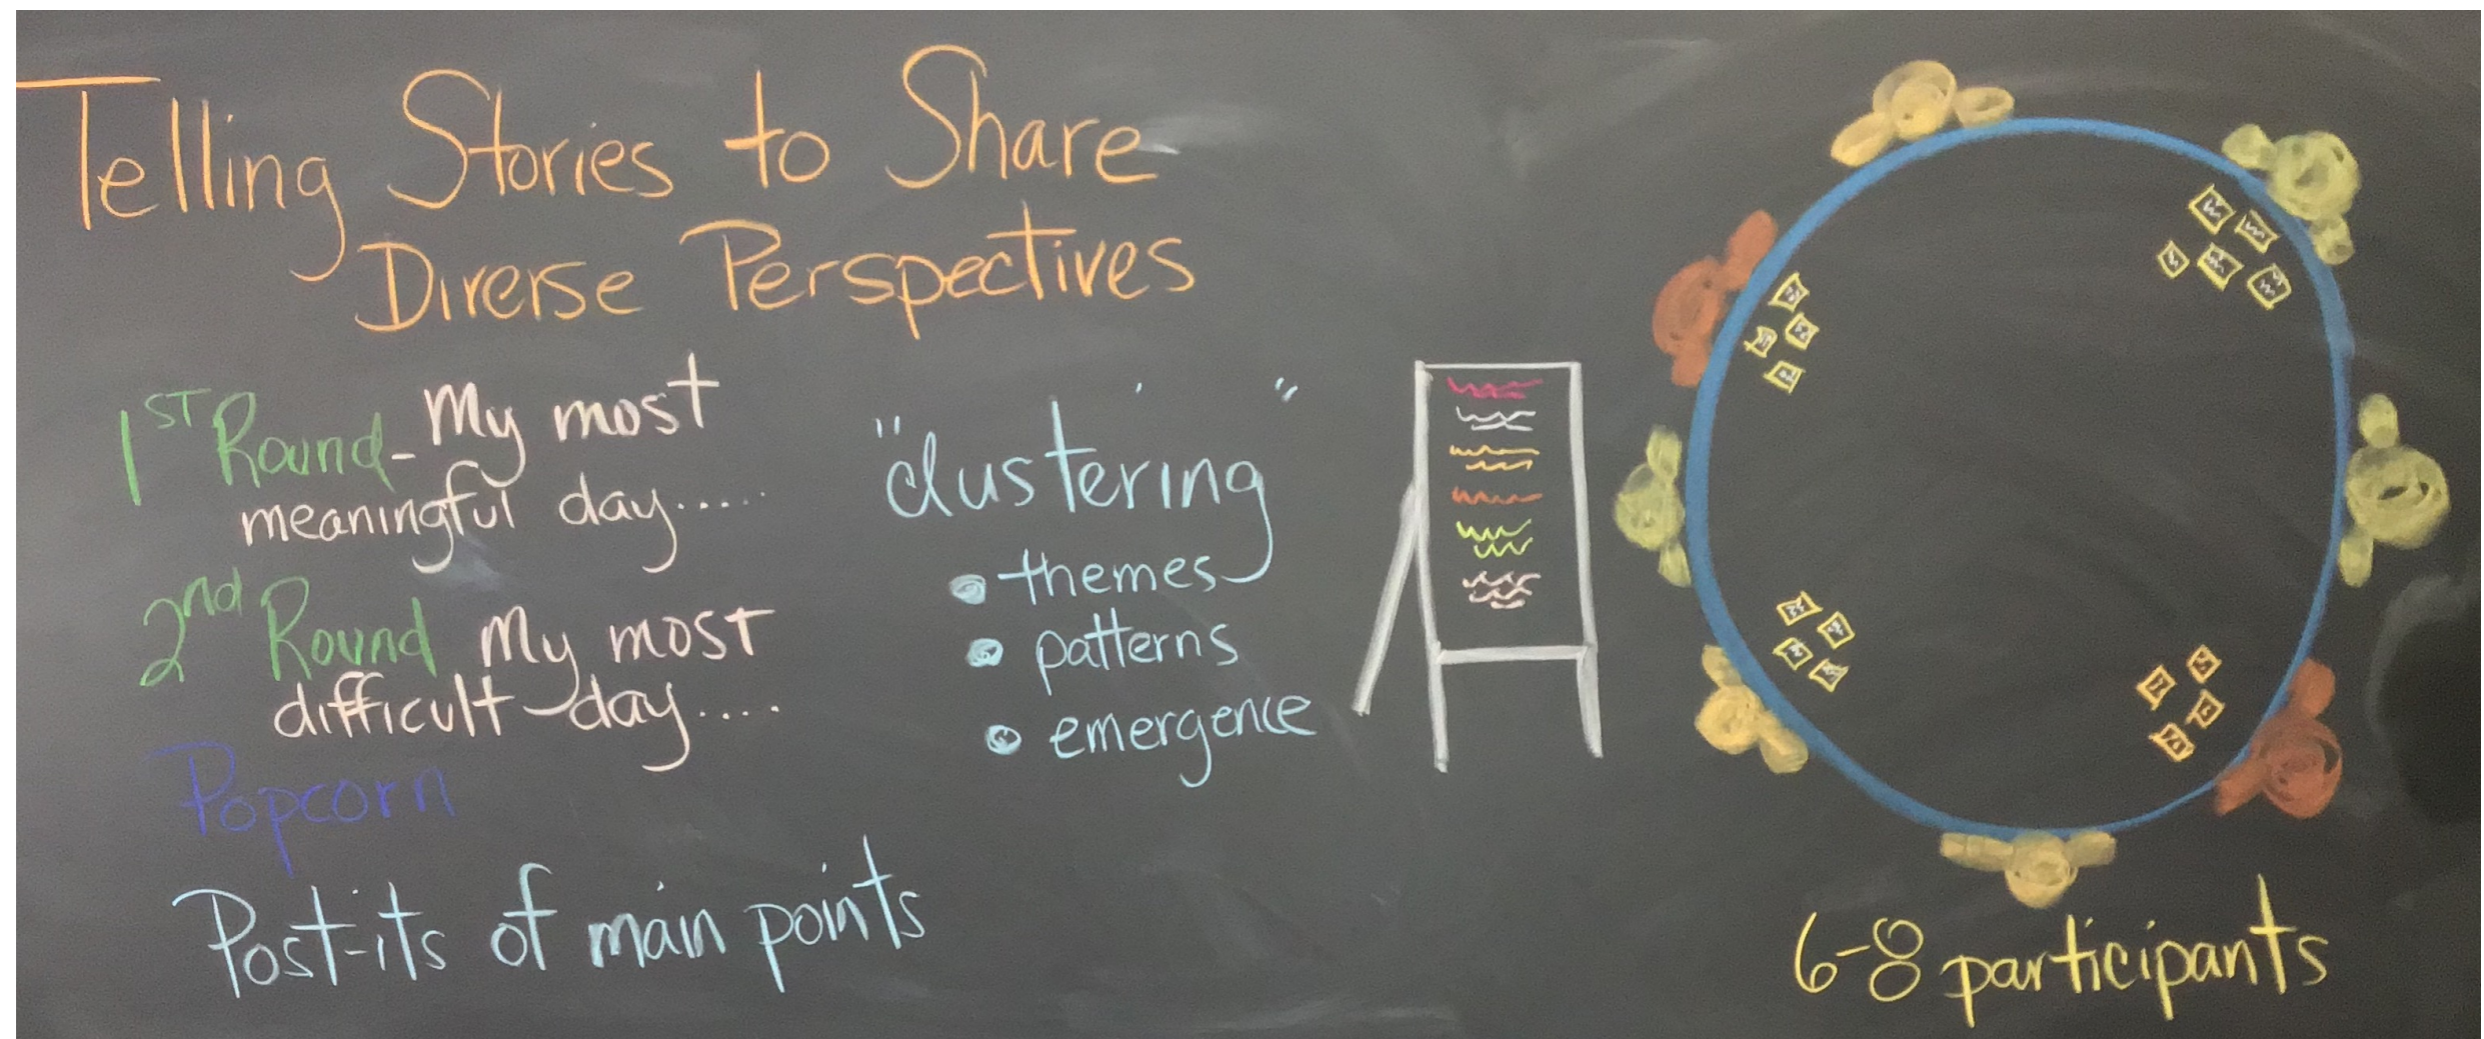 Telling Stories to Share
Diverse Perspectives
1ST Round - My most
meaningful day.....
2nd Round My most
difficult day....
Popcorn
Post-its of main points
"clustering"
themes
patterns
emergence
6-8 participants